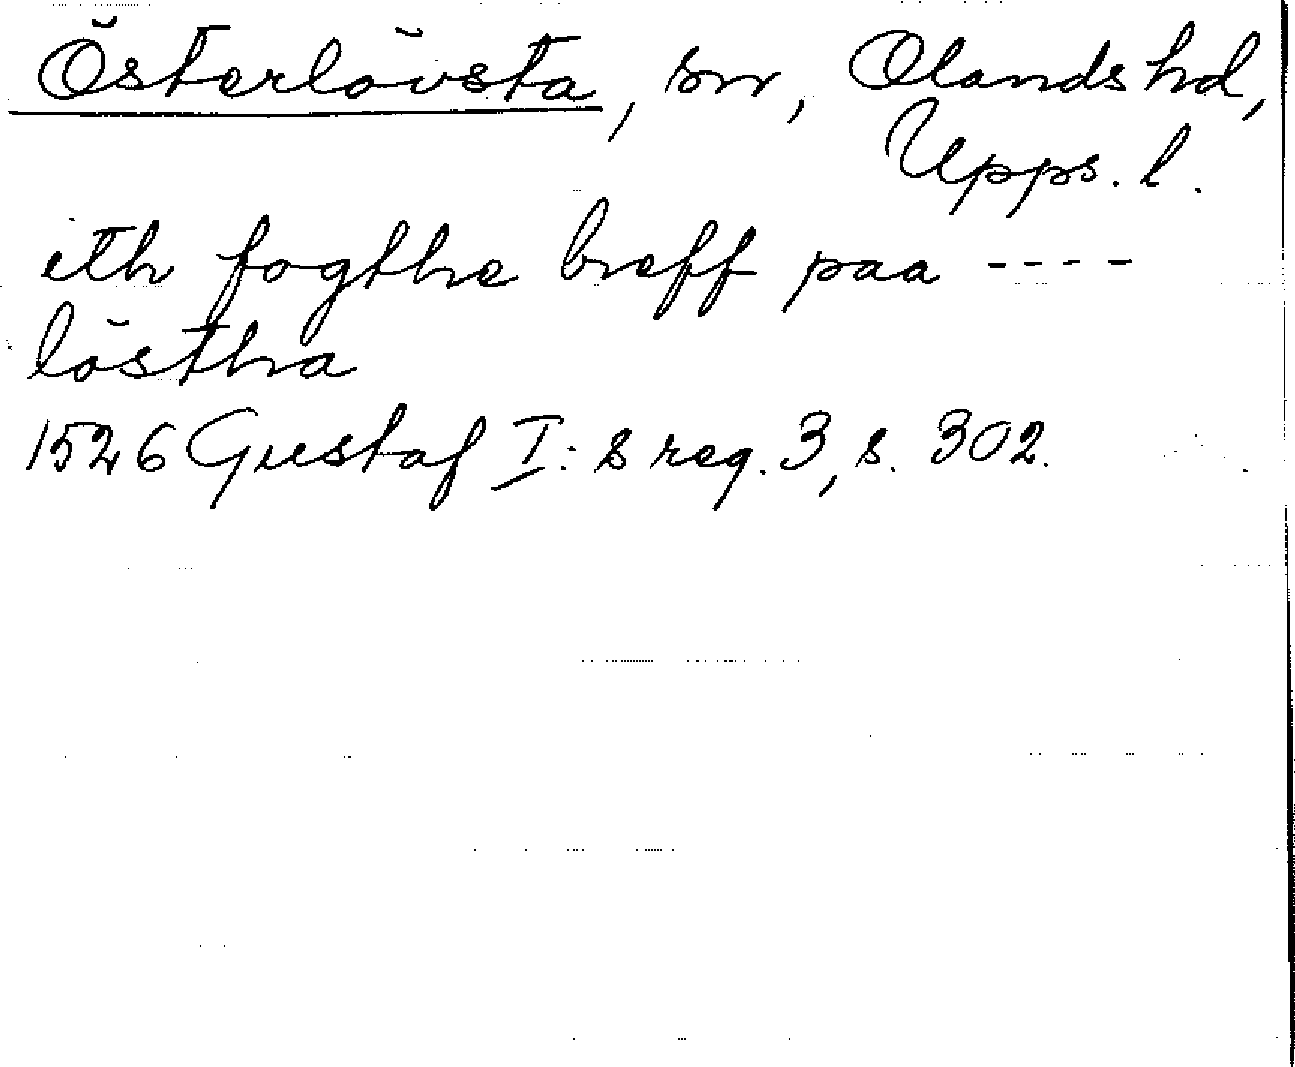 Österlövsta, sn, Olands hd,
Upps. l.
eth fogthe breff paa ----
löstha
1526 Gustaf I:s reg. 3, s. 302.